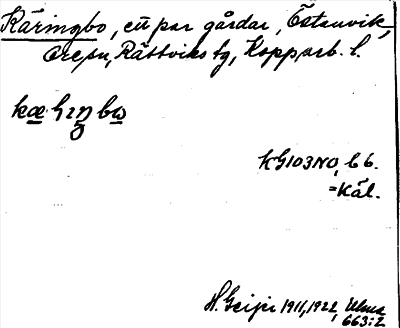 Käringbo, ett par gårdar, Östanvik,
Ore sn, Rättviks tg, Kopparb. l.
KG103NO, b6.
=Käl.
H. Geijer 1911, 1922, Ulma
663:2